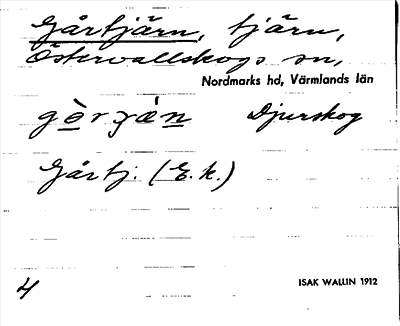 Gårtjärn, tjärn,
Östervallskogs sn,
Nordmarks hd, Värmlands län
gè̱rʒán̲ Djurskog
Gårtj. (E.k.)
4 ISAK WALLIN 1912